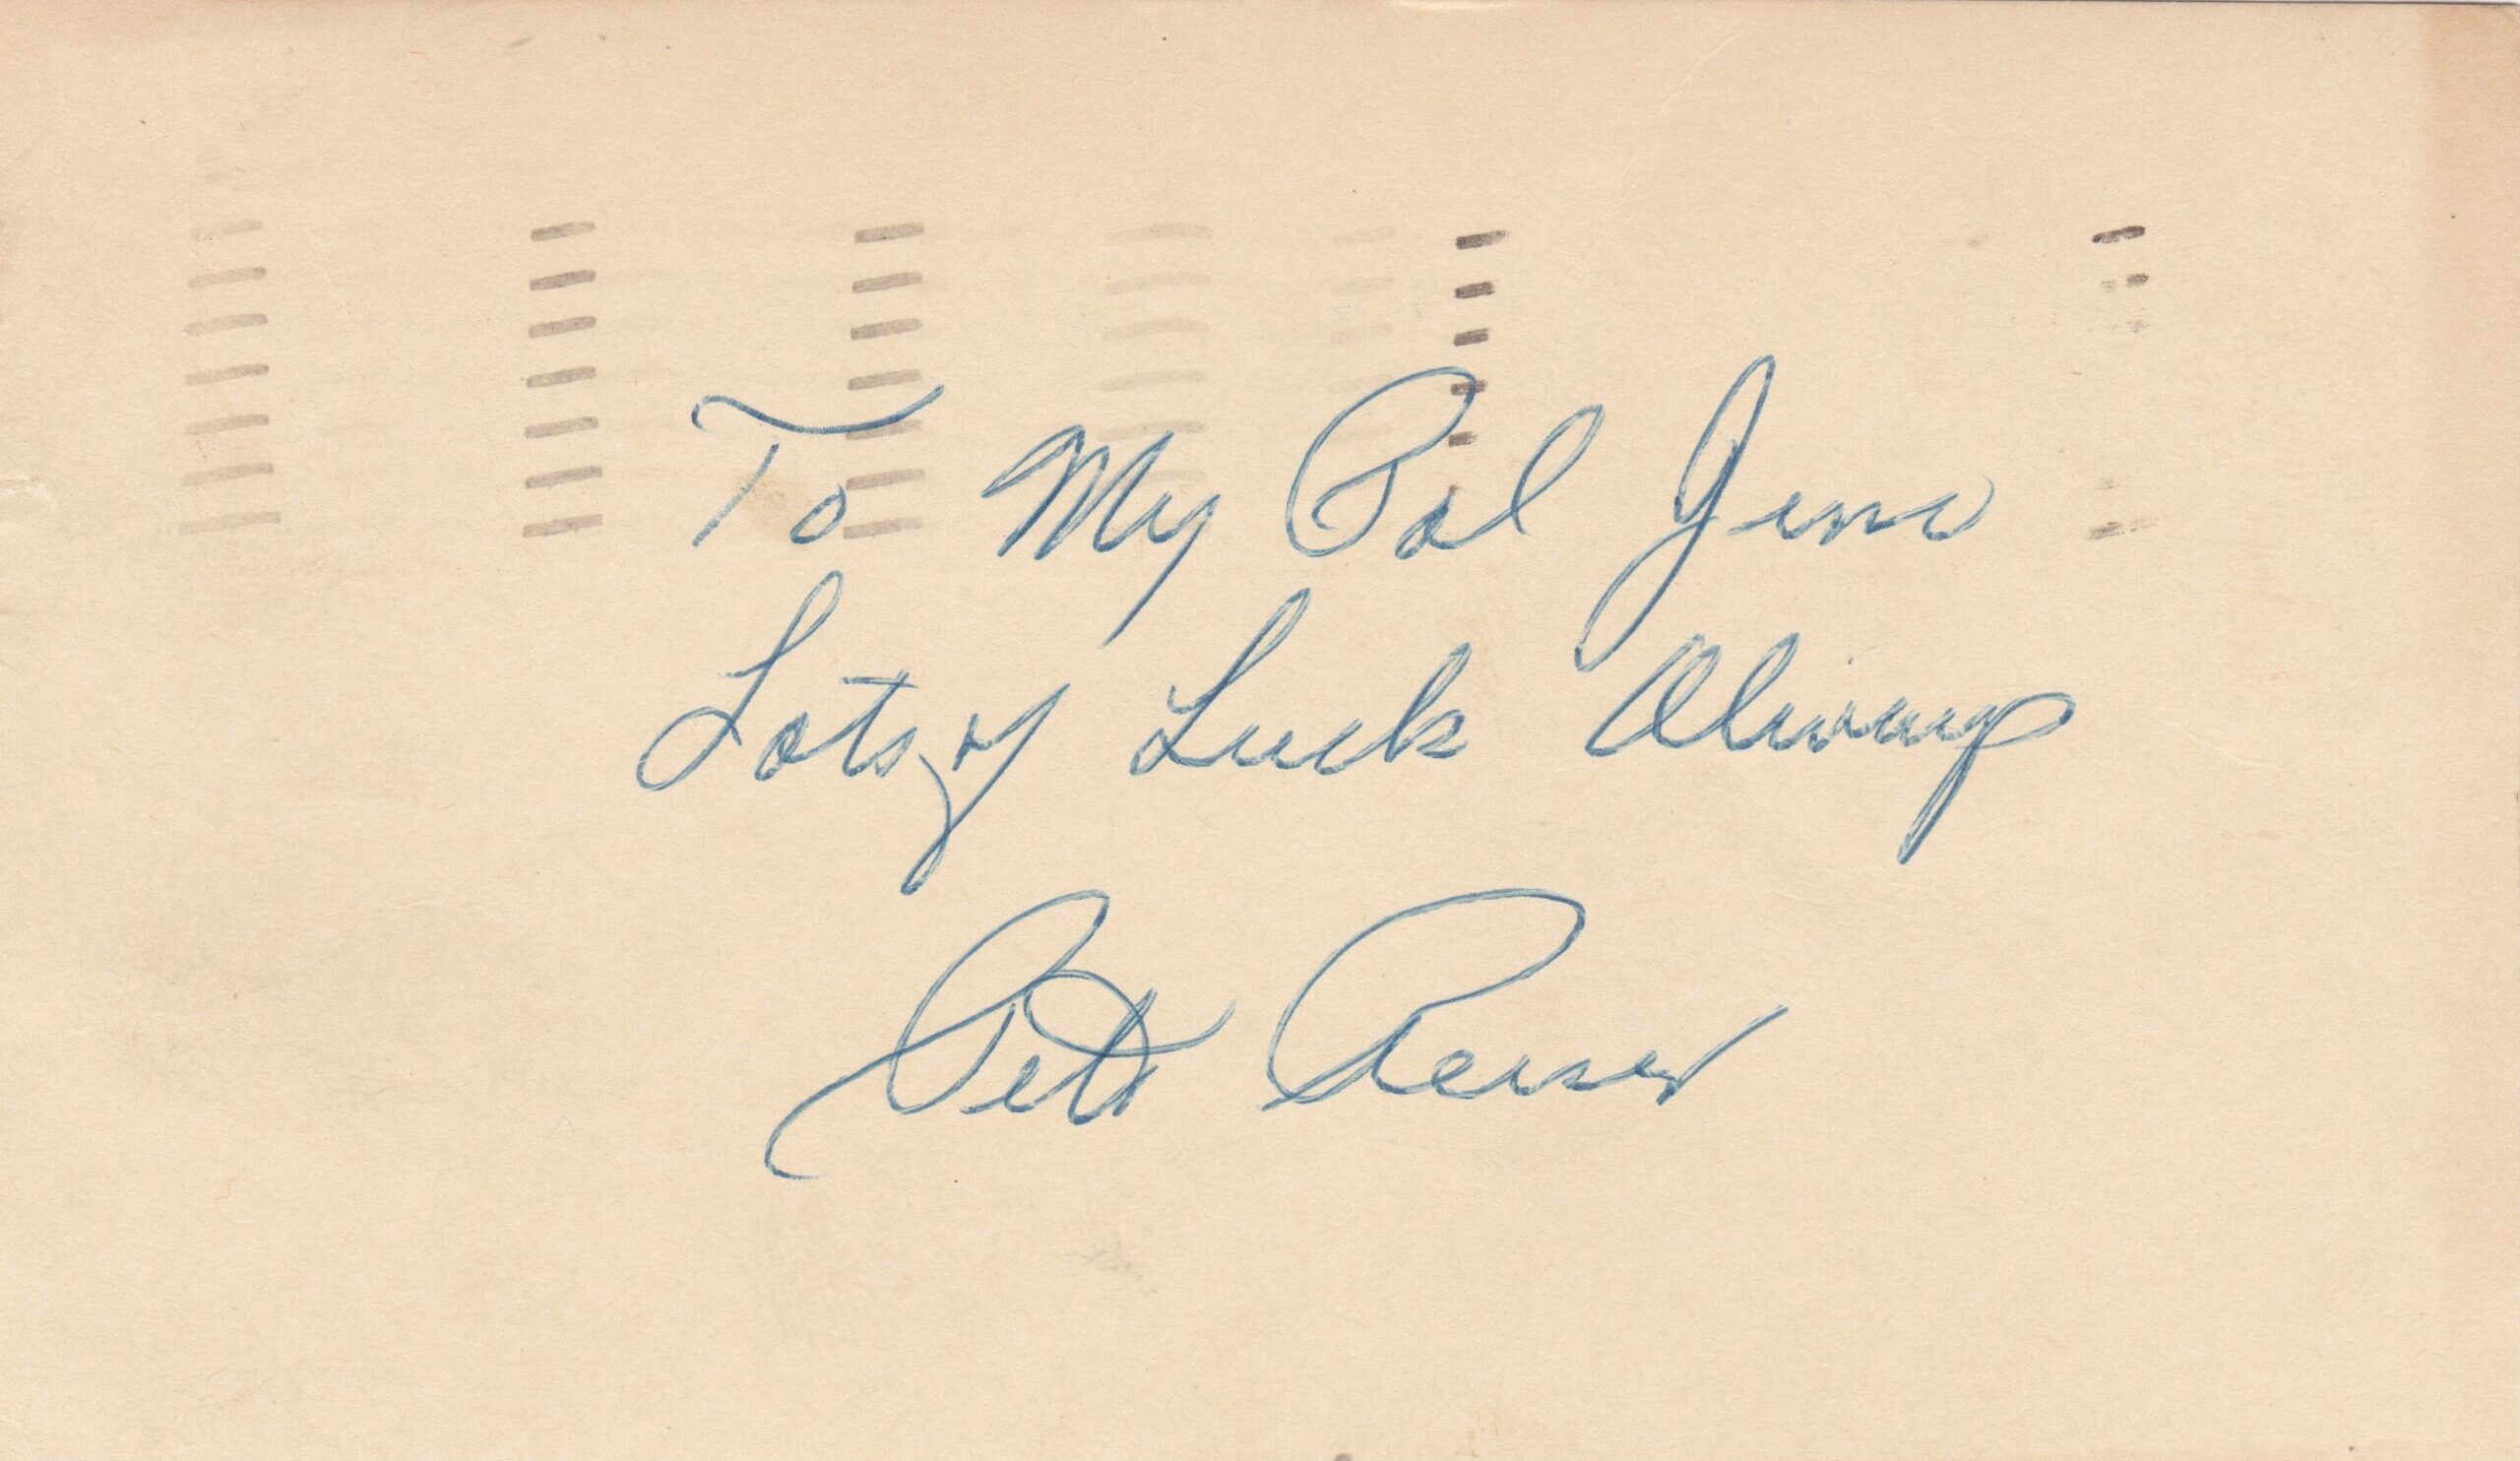 To My Pal Gene
Lots of Luck Always
Pete Reiser